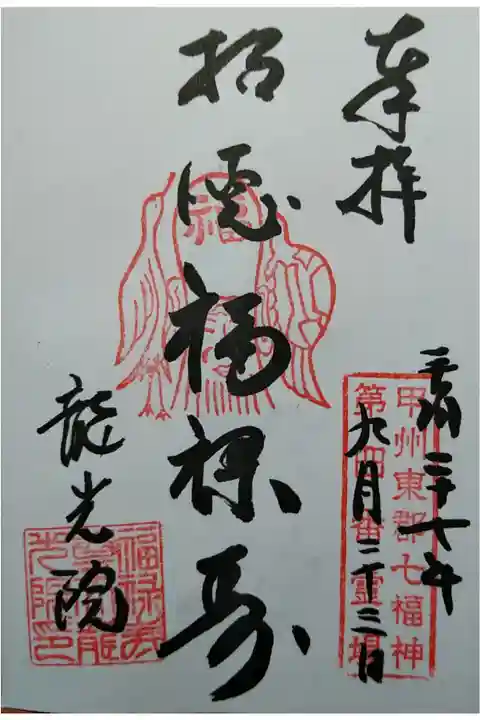 奉拝
平成二十七年
九月二十三日
甲州東郡七福神
第四番霊場
招徳福禄寿
福
龍光院